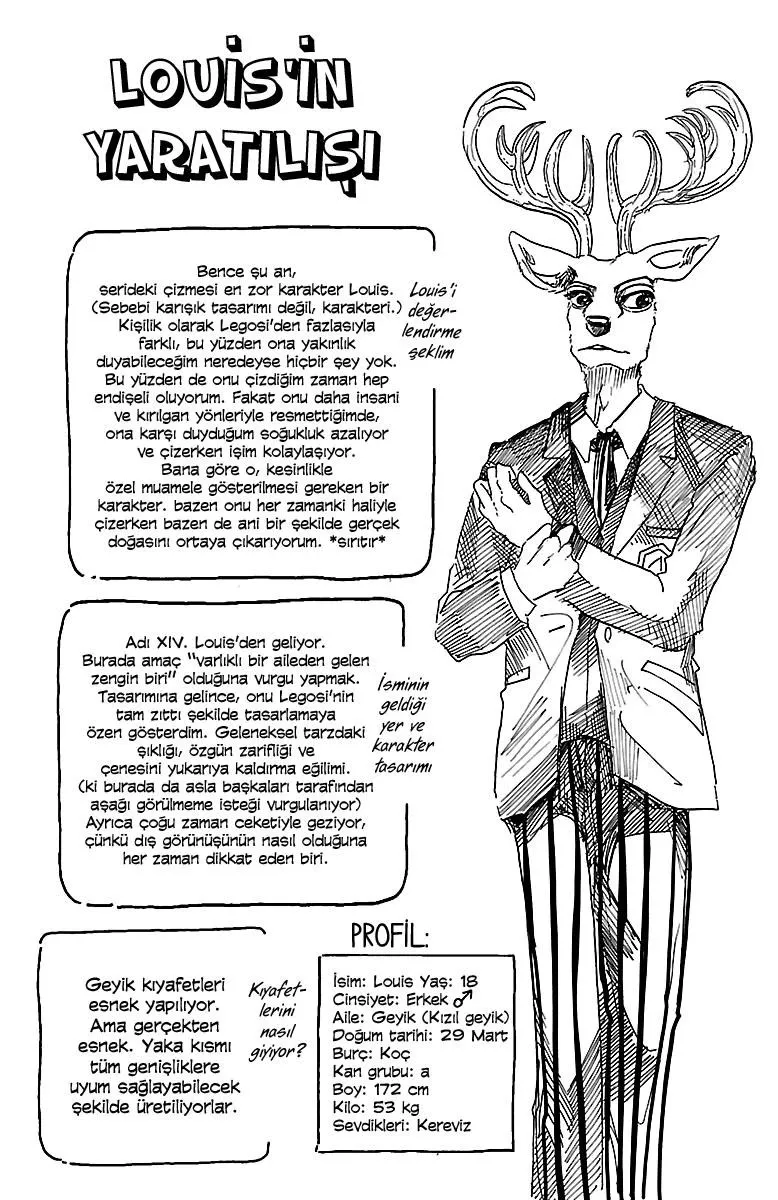 LOUİS'İN
YARATILIŞI
Bence şu an,
serideki çizmesi en zor karakter Louis.
(Sebebi karışık tasarımı değil, karakteri.)
Kişilik olarak Legosi'den fazlasıyla
farklı, bu yüzden ona yakınlık
duyabileceğim neredeyse hiçbir şey yok.
Bu yüzden de onu çizdiğim zaman hep
endişeli oluyorum. Fakat onu daha insani
ve kırılgan yönleriyle resmettiğimde,
ona karşı duyduğum soğukluk azalıyor
ve çizerken işim kolaylaşıyor.
Bana göre o, kesinlikle
özel muamele gösterilmesi gereken bir
karakter. bazen onu her zamanki haliyle
çizerken bazen de ani bir şekilde gerçek
doğasını ortaya çıkarıyorum. *sırıtır*
Louis'i
değer-
lendirme
şeklim
Adı XIV. Louis'den geliyor.
Burada amaç "varlıklı bir aileden gelen
zengin biri" olduğuna vurgu yapmak.
Tasarımına gelince, onu Legosi'nin
tam zıttı şekilde tasarlamaya
özen gösterdim. Geleneksel tarzdaki
şıklığı, özgün zarifliği ve
çenesini yukarıya kaldırma eğilimi.
(ki burada da asla başkaları tarafından
aşağı görülmeme isteği vurgulanıyor)
Ayrıca çoğu zaman ceketiyle geziyor,
çünkü dış görünüşünün nasıl olduğuna
her zaman dikkat eden biri.
İsminin
geldiği
yer ve
karakter
tasarımı
Geyik kıyafetleri
esnek yapılıyor.
Ama gerçekten
esnek. Yaka kısmı
tüm genişliklere
uyum sağlayabilecek
şekilde üretiliyorlar.
Kıyafet-
lerini
nasıl
giyiyor?
PROFİL:
İsim: Louis Yaş: 18
Cinsiyet: Erkek ♂
Aile: Geyik (Kızıl geyik)
Doğum tarihi: 29 Mart
Burç: Koç
Kan grubu: a
Boy: 172 cm
Kilo: 53 kg
Sevdikleri: Kereviz